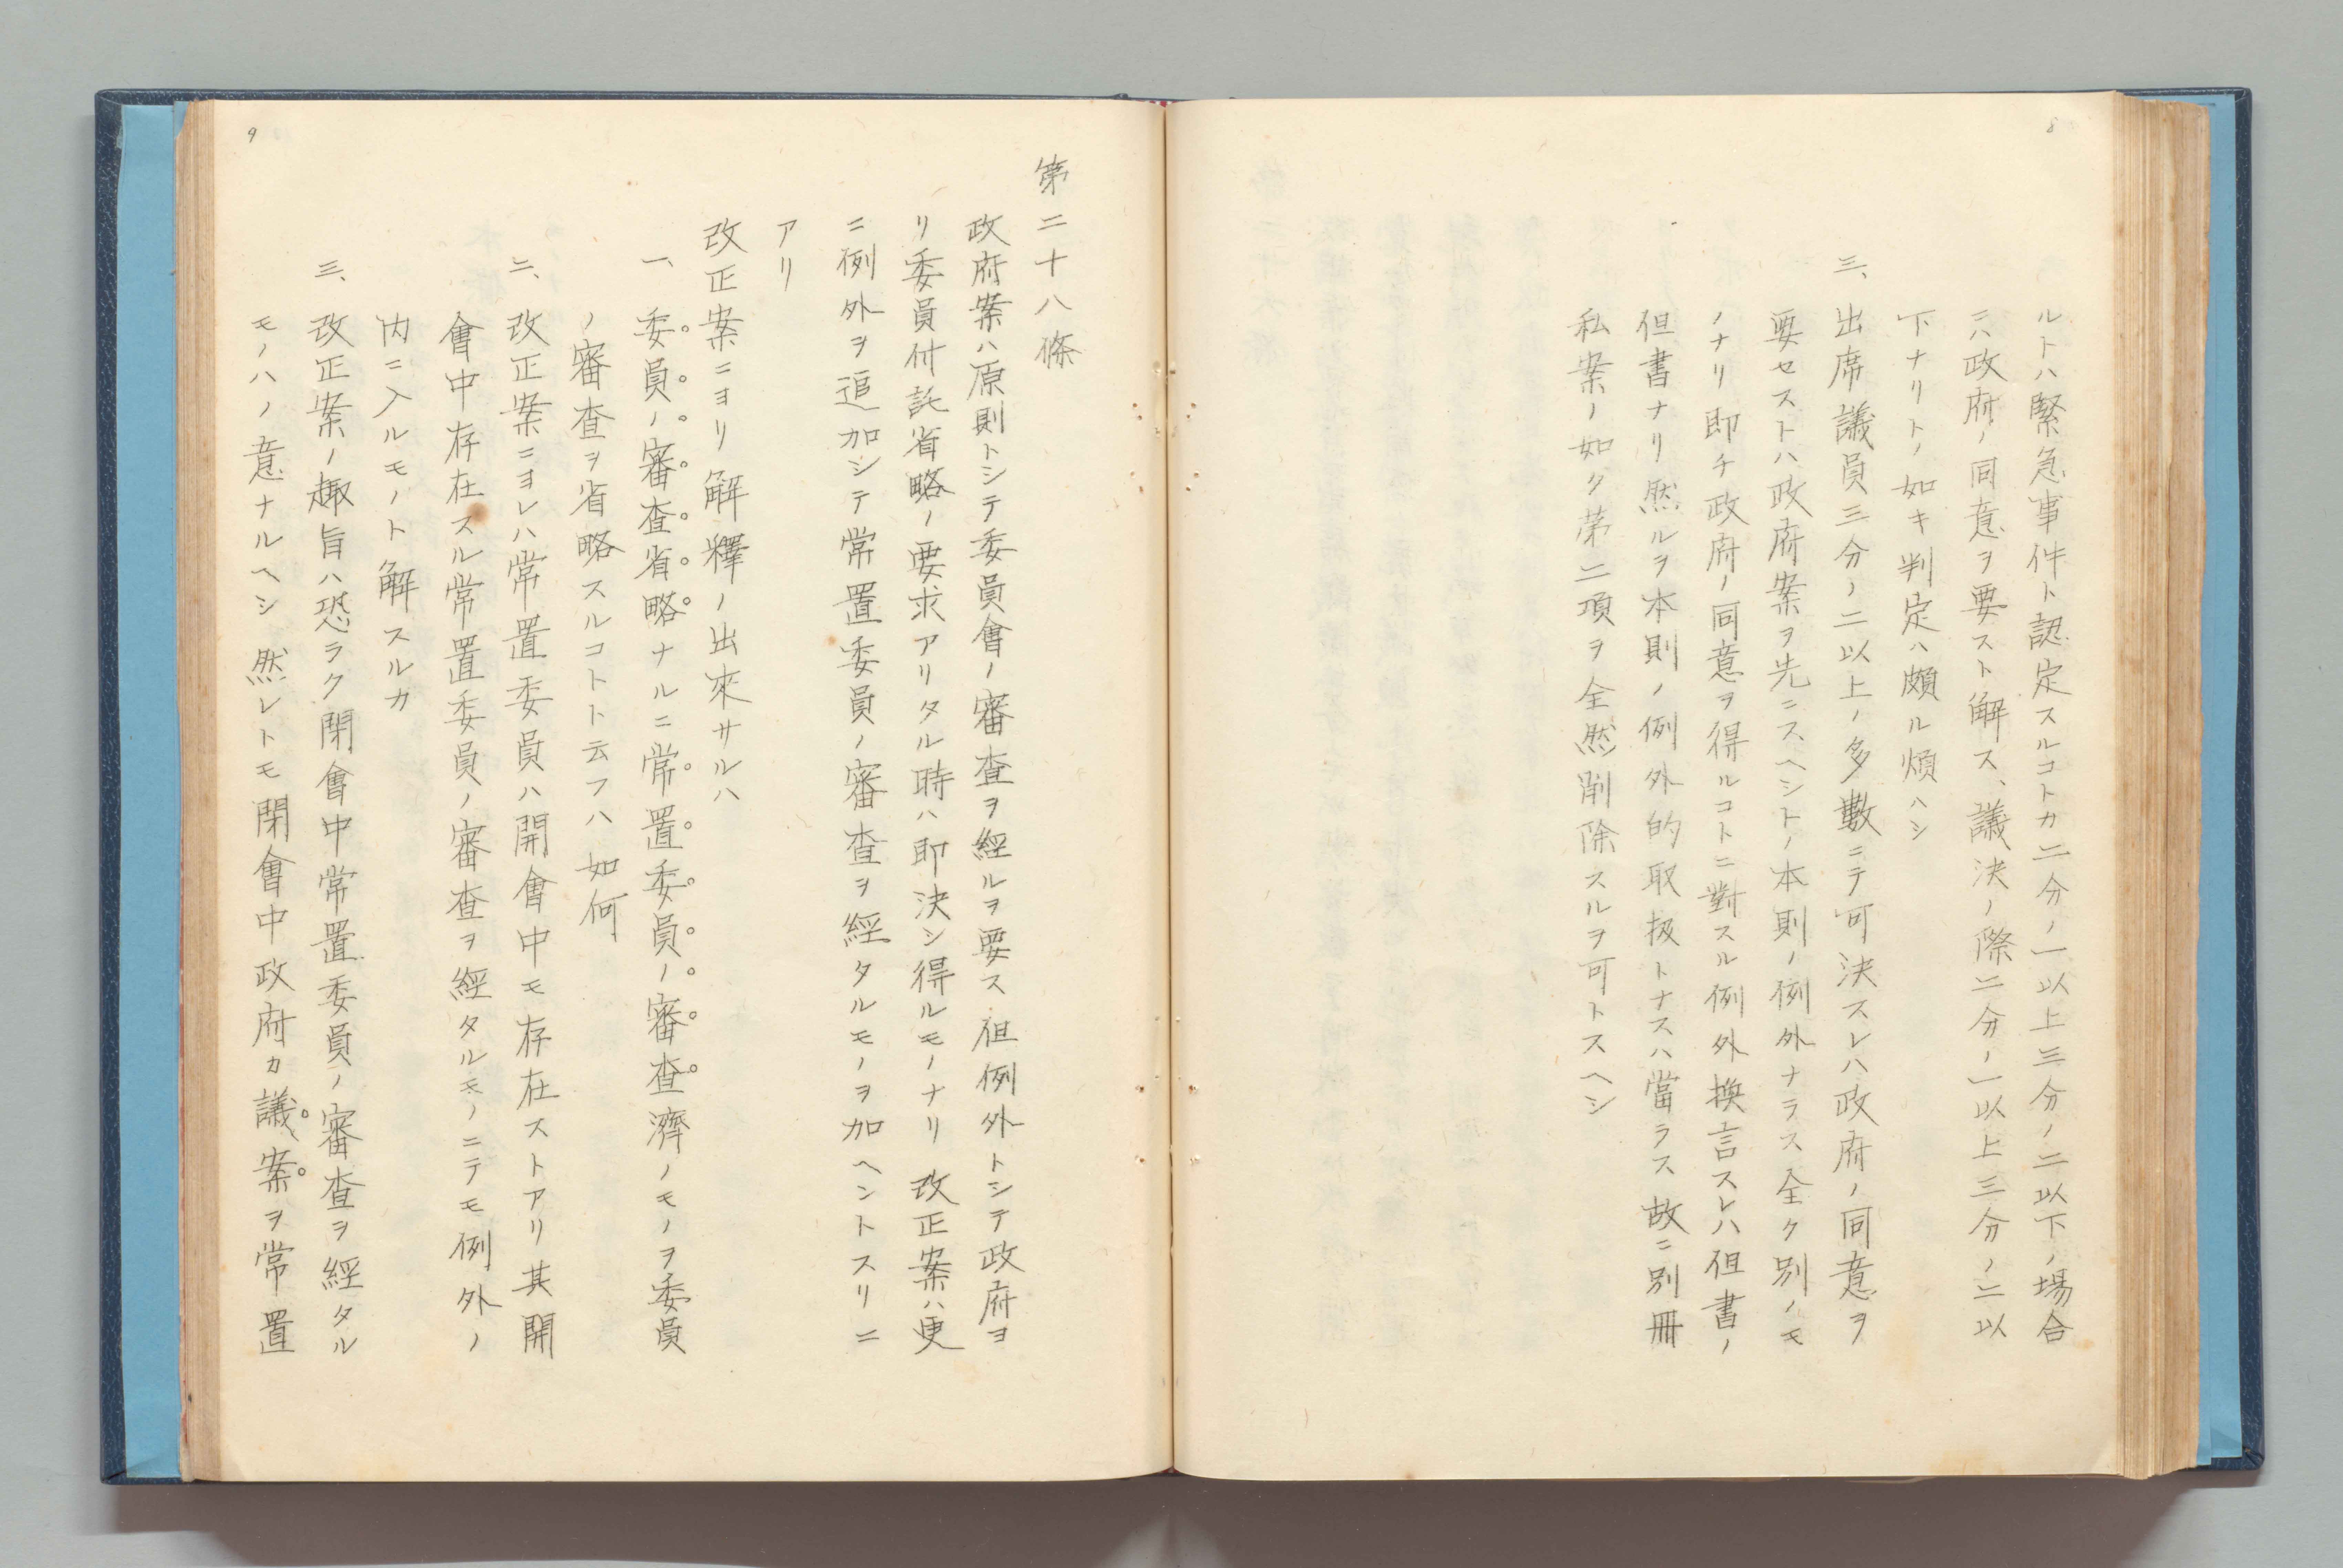 8
ルトハ緊急事件ト認定スルコトカ二分ノ一以上三分ノ二以下ノ場合
ニハ政府ノ同意ヲ要スト解ス、議決ノ際二分ノ一以上三分ノ二以
下ナリトノ如キ判定ハ頗ル煩ハシ
三、出席議員三分ノ二以上ノ多數ニテ可決スレハ政府ノ同意ヲ
要セストハ政府案ヲ先ニスヘシトノ本則ノ例外ナラス全ク別ノモ
ノナリ即チ政府ノ同意ヲ得ルコトニ對スル例外換言スレハ但書ノ
但書ナリ然ルヲ本則ノ例外的取扱トナスハ當ラス故ニ別冊
私案ノ如ク第二項ヲ全然削除スルヲ可トスヘシ
第二十八條
政府案ハ原則トシテ委員會ノ審査ヲ經ルヲ要ス但例外トシテ政府ヨ
リ委員付託省略ノ要求アリタル時ハ即決シ得ルモノナリ改正案ハ更
ニ例外ヲ追加シテ常置委員ノ審査ヲ經タルモノヲ加ヘントスリニ
アリ
改正案ニヨリ解釋ノ出來サルハ
一、委員ノ審査省略ナルニ常置委員ノ審査濟ノモノヲ委員
ノ審査ヲ省略スルコトト云フハ如何
二、改正案ニヨレハ常置委員ハ開會中モ存在ストアリ其開
會中存在スル常置委員ノ審査ヲ經タルモノニテモ例外ノ
内ニ入ルモノト解スルカ
三、改正案ノ趣旨ハ恐ラク閉會中常置委員ノ審査ヲ經タル
モノハノ意ナルヘシ然レトモ閉會中政府カ議案ヲ常置
9